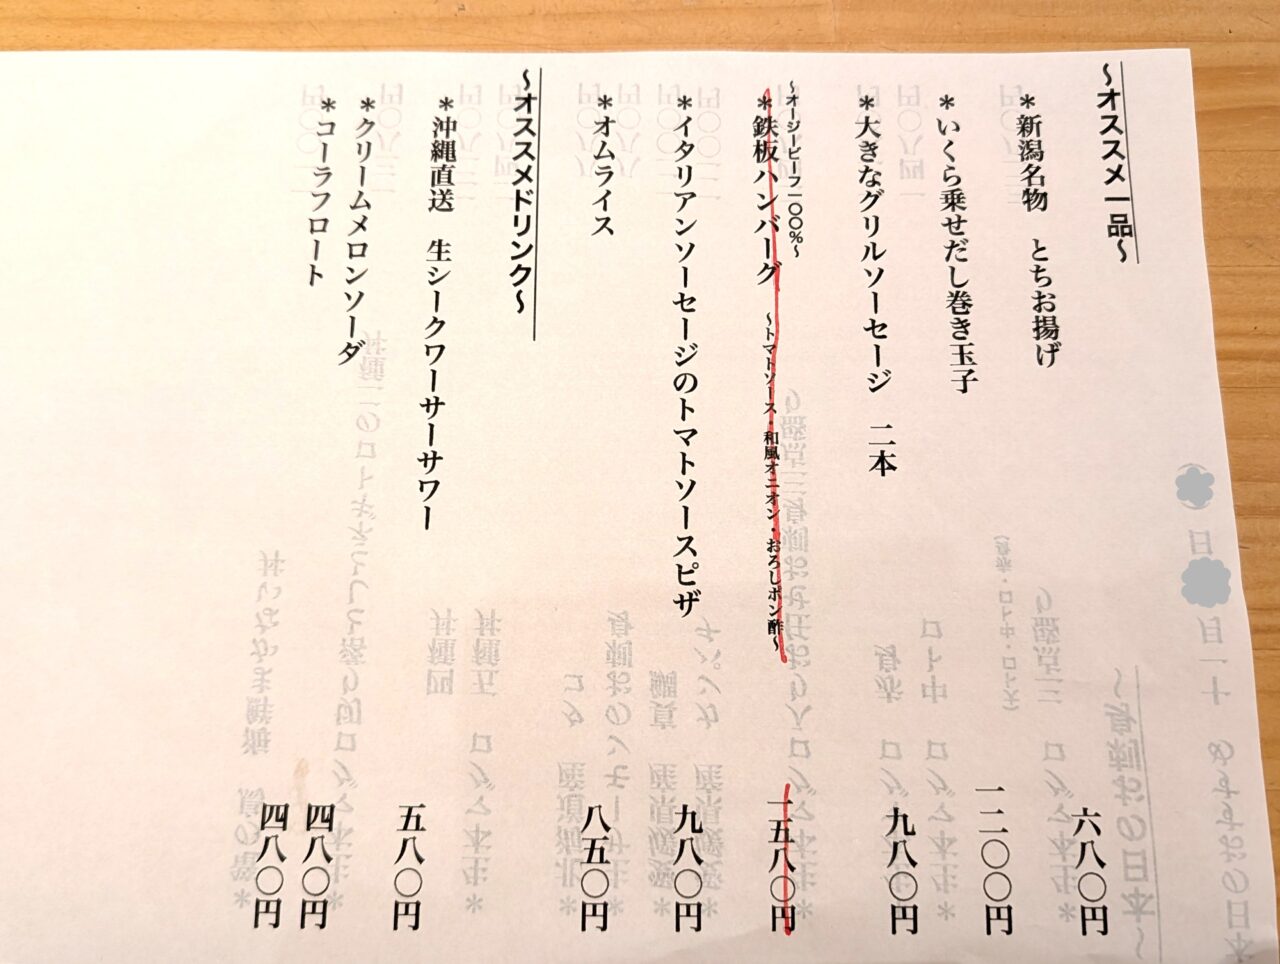 ～オススメ一品～
＊新潟名物　とちお揚げ　六八〇円
＊いくら乗せだし巻き玉子　一二〇〇円
＊大きなグリルソーセージ　二本　九八〇円
～オージービーフ一〇〇％～
＊鉄板ハンバーグ　～トマトソース・和風オニオン・おろしポン酢～　一五八〇円
＊イタリアンソーセージのトマトソースピザ　九八〇円
＊オムライス　八五〇円
～オススメドリンク～
＊沖縄直送　生シークワーサーサワー　五八〇円
＊クリームメロンソーダ　四八〇円
＊コーラフロート　四八〇円